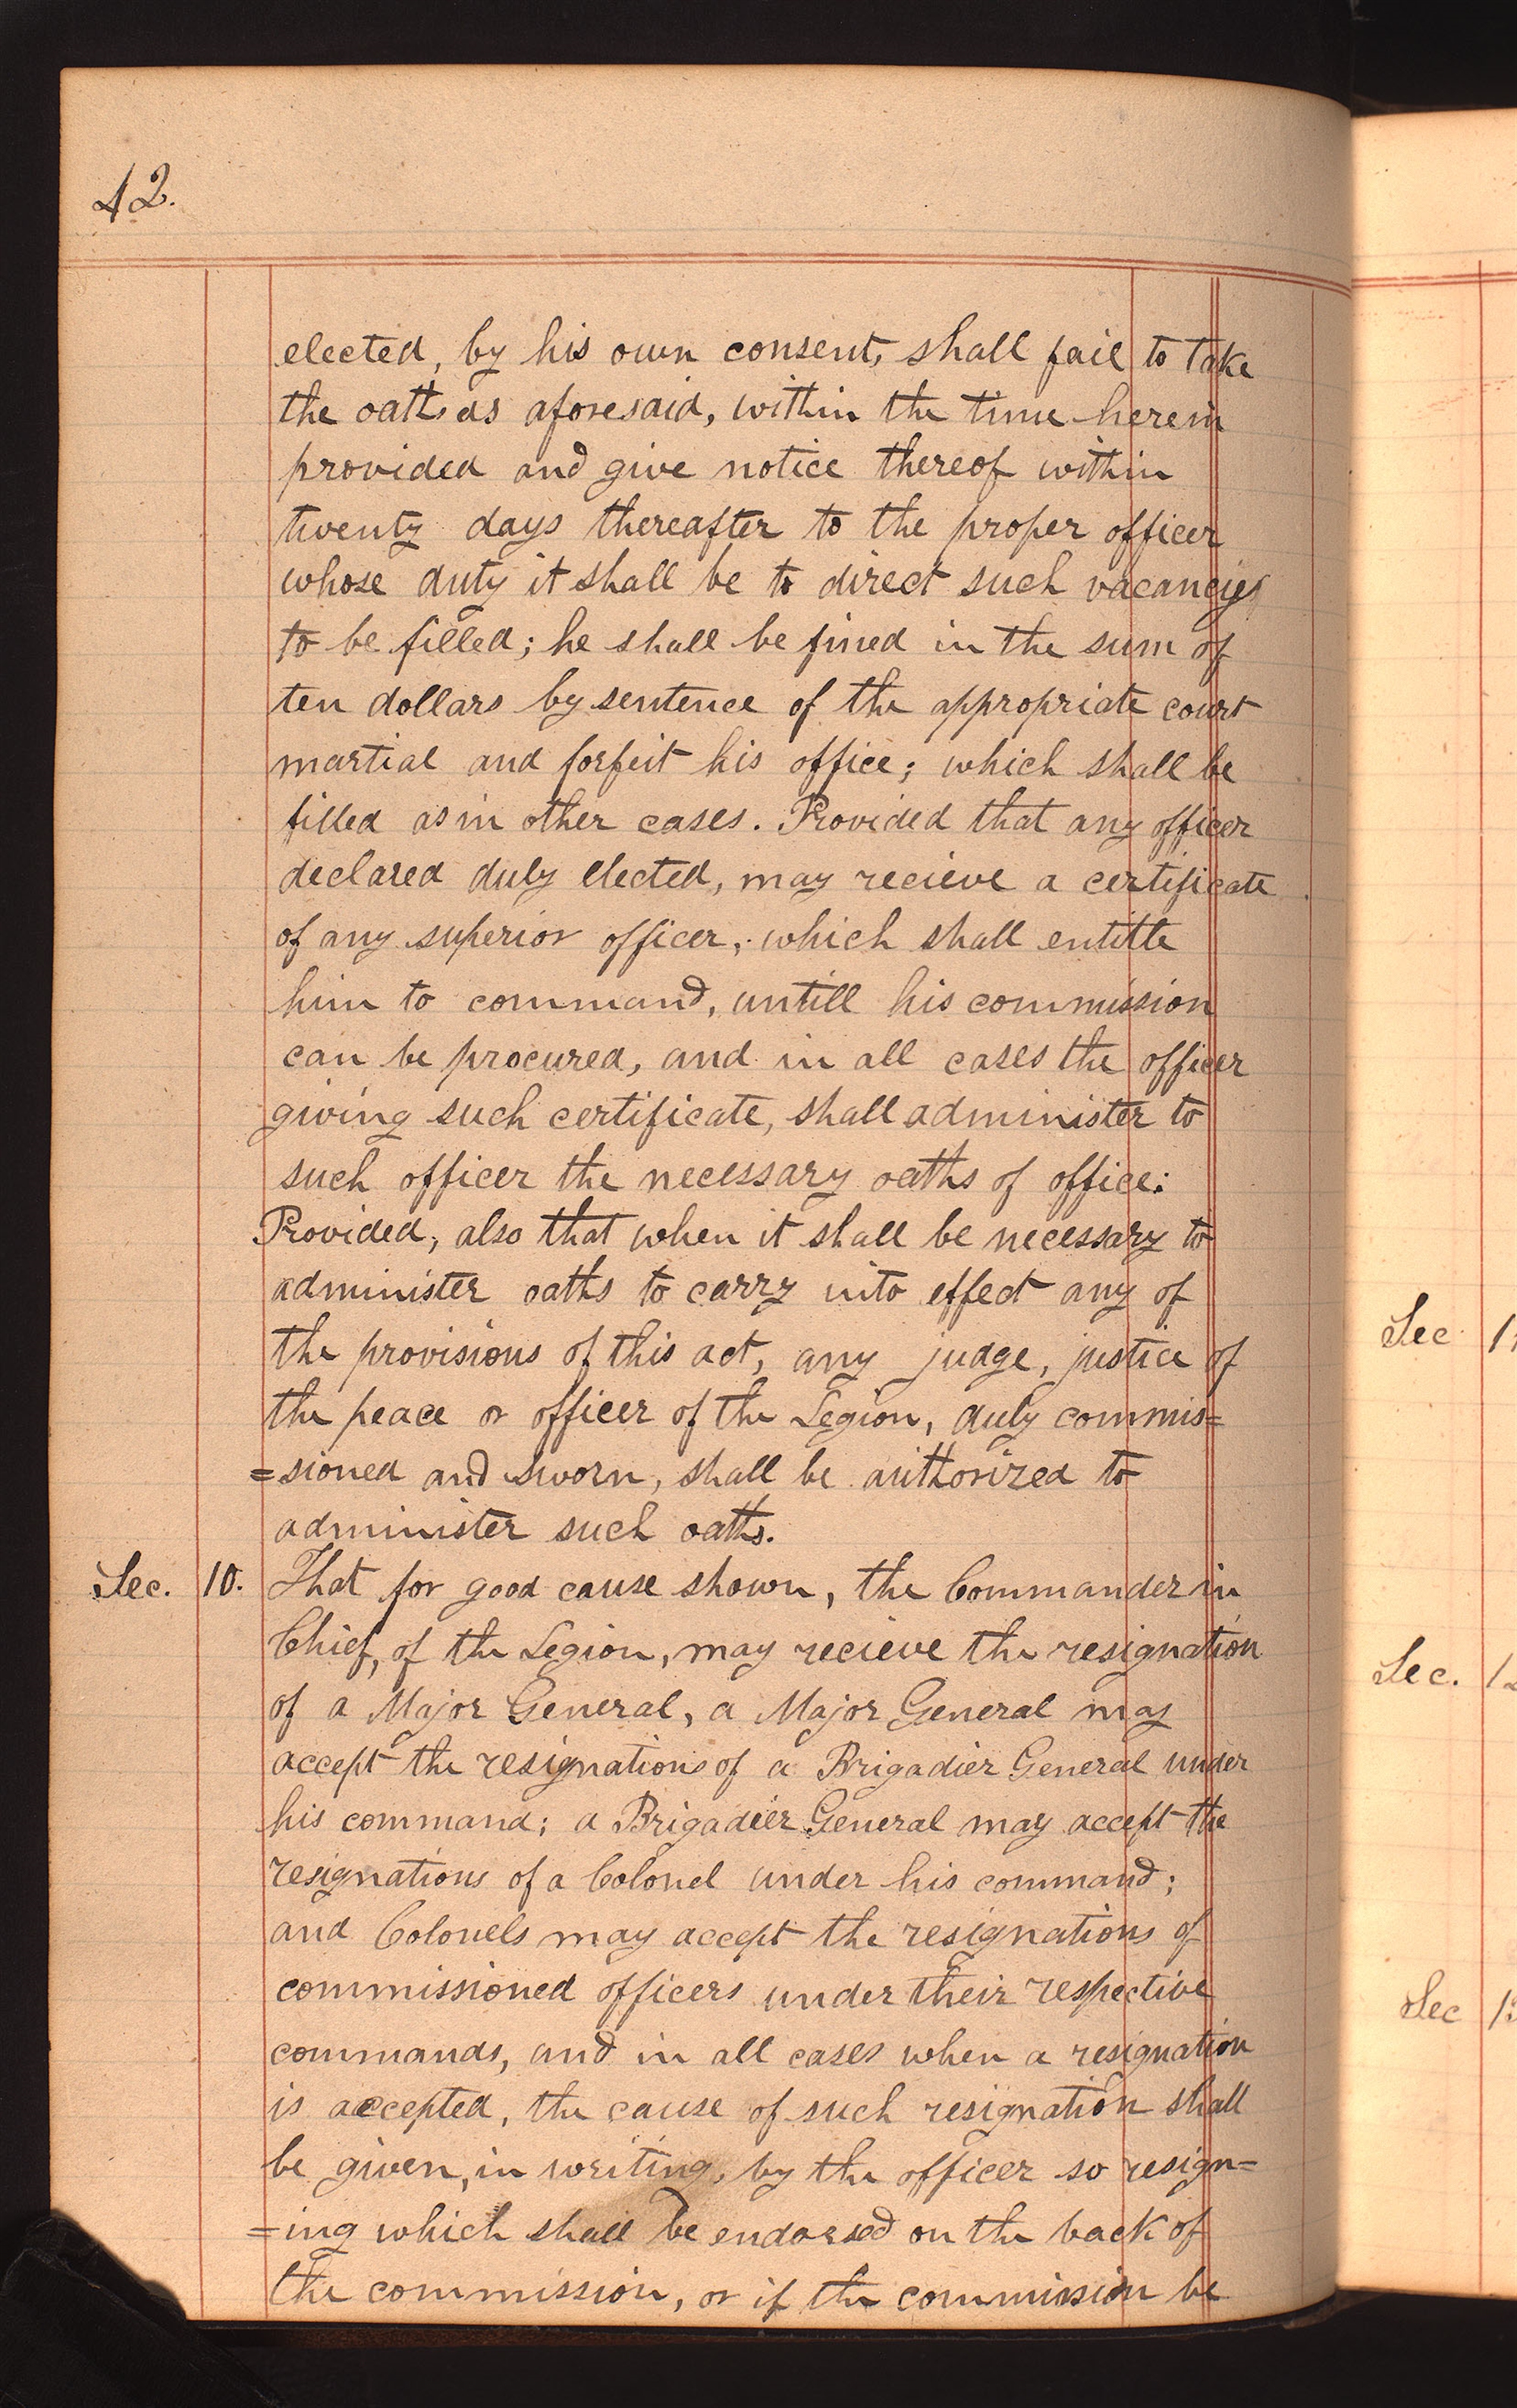 42.
elected, by his own consent, shall fail to take
the oath as aforesaid, within the time herein
provided and give notice thereof within
twenty days thereafter to the proper officer
whose duty it shall be to direct such vacancies
to be filled; he shall be fined in the sum of
ten dollars by sentence of the appropriate court
martial and forfeit his office; which shall be
filled as in other cases. Provided that any officer
declared duly elected, may recieve a certificate
of any superior officer, which shall entitle
him to command, untill his commission
can be procured, and in all cases the officer
giving such certificate, shall administer to
such officer the necessary oaths of office:
Provided, also that when it shall be necessary to
administer oaths to carry into effect any of
the provisions of this act, any judge, justice of
the peace or officer of the Legion, duly commis=
=sioned and sworn, shall be authorized to
administer such oaths.
Sec. 10. That for good cause shown, the Commander in
Chief, of the Legion, may recieve the resignation
of a Major General, a Major General may
accept the resignations of a Brigadier General under
his command; a Brigadier General may accept the
resignations of a Colonel under his command;
and Colonels may accept the resignations of
commissioned officers under their respective
commands, and in all cases when a resignation
is accepted, the cause of such resignation shall
be given, in writing, by the officer so resign=
=ing which shall be endorsed on the back of
the commission, or if the commission be
Sec
Sec.
Sec